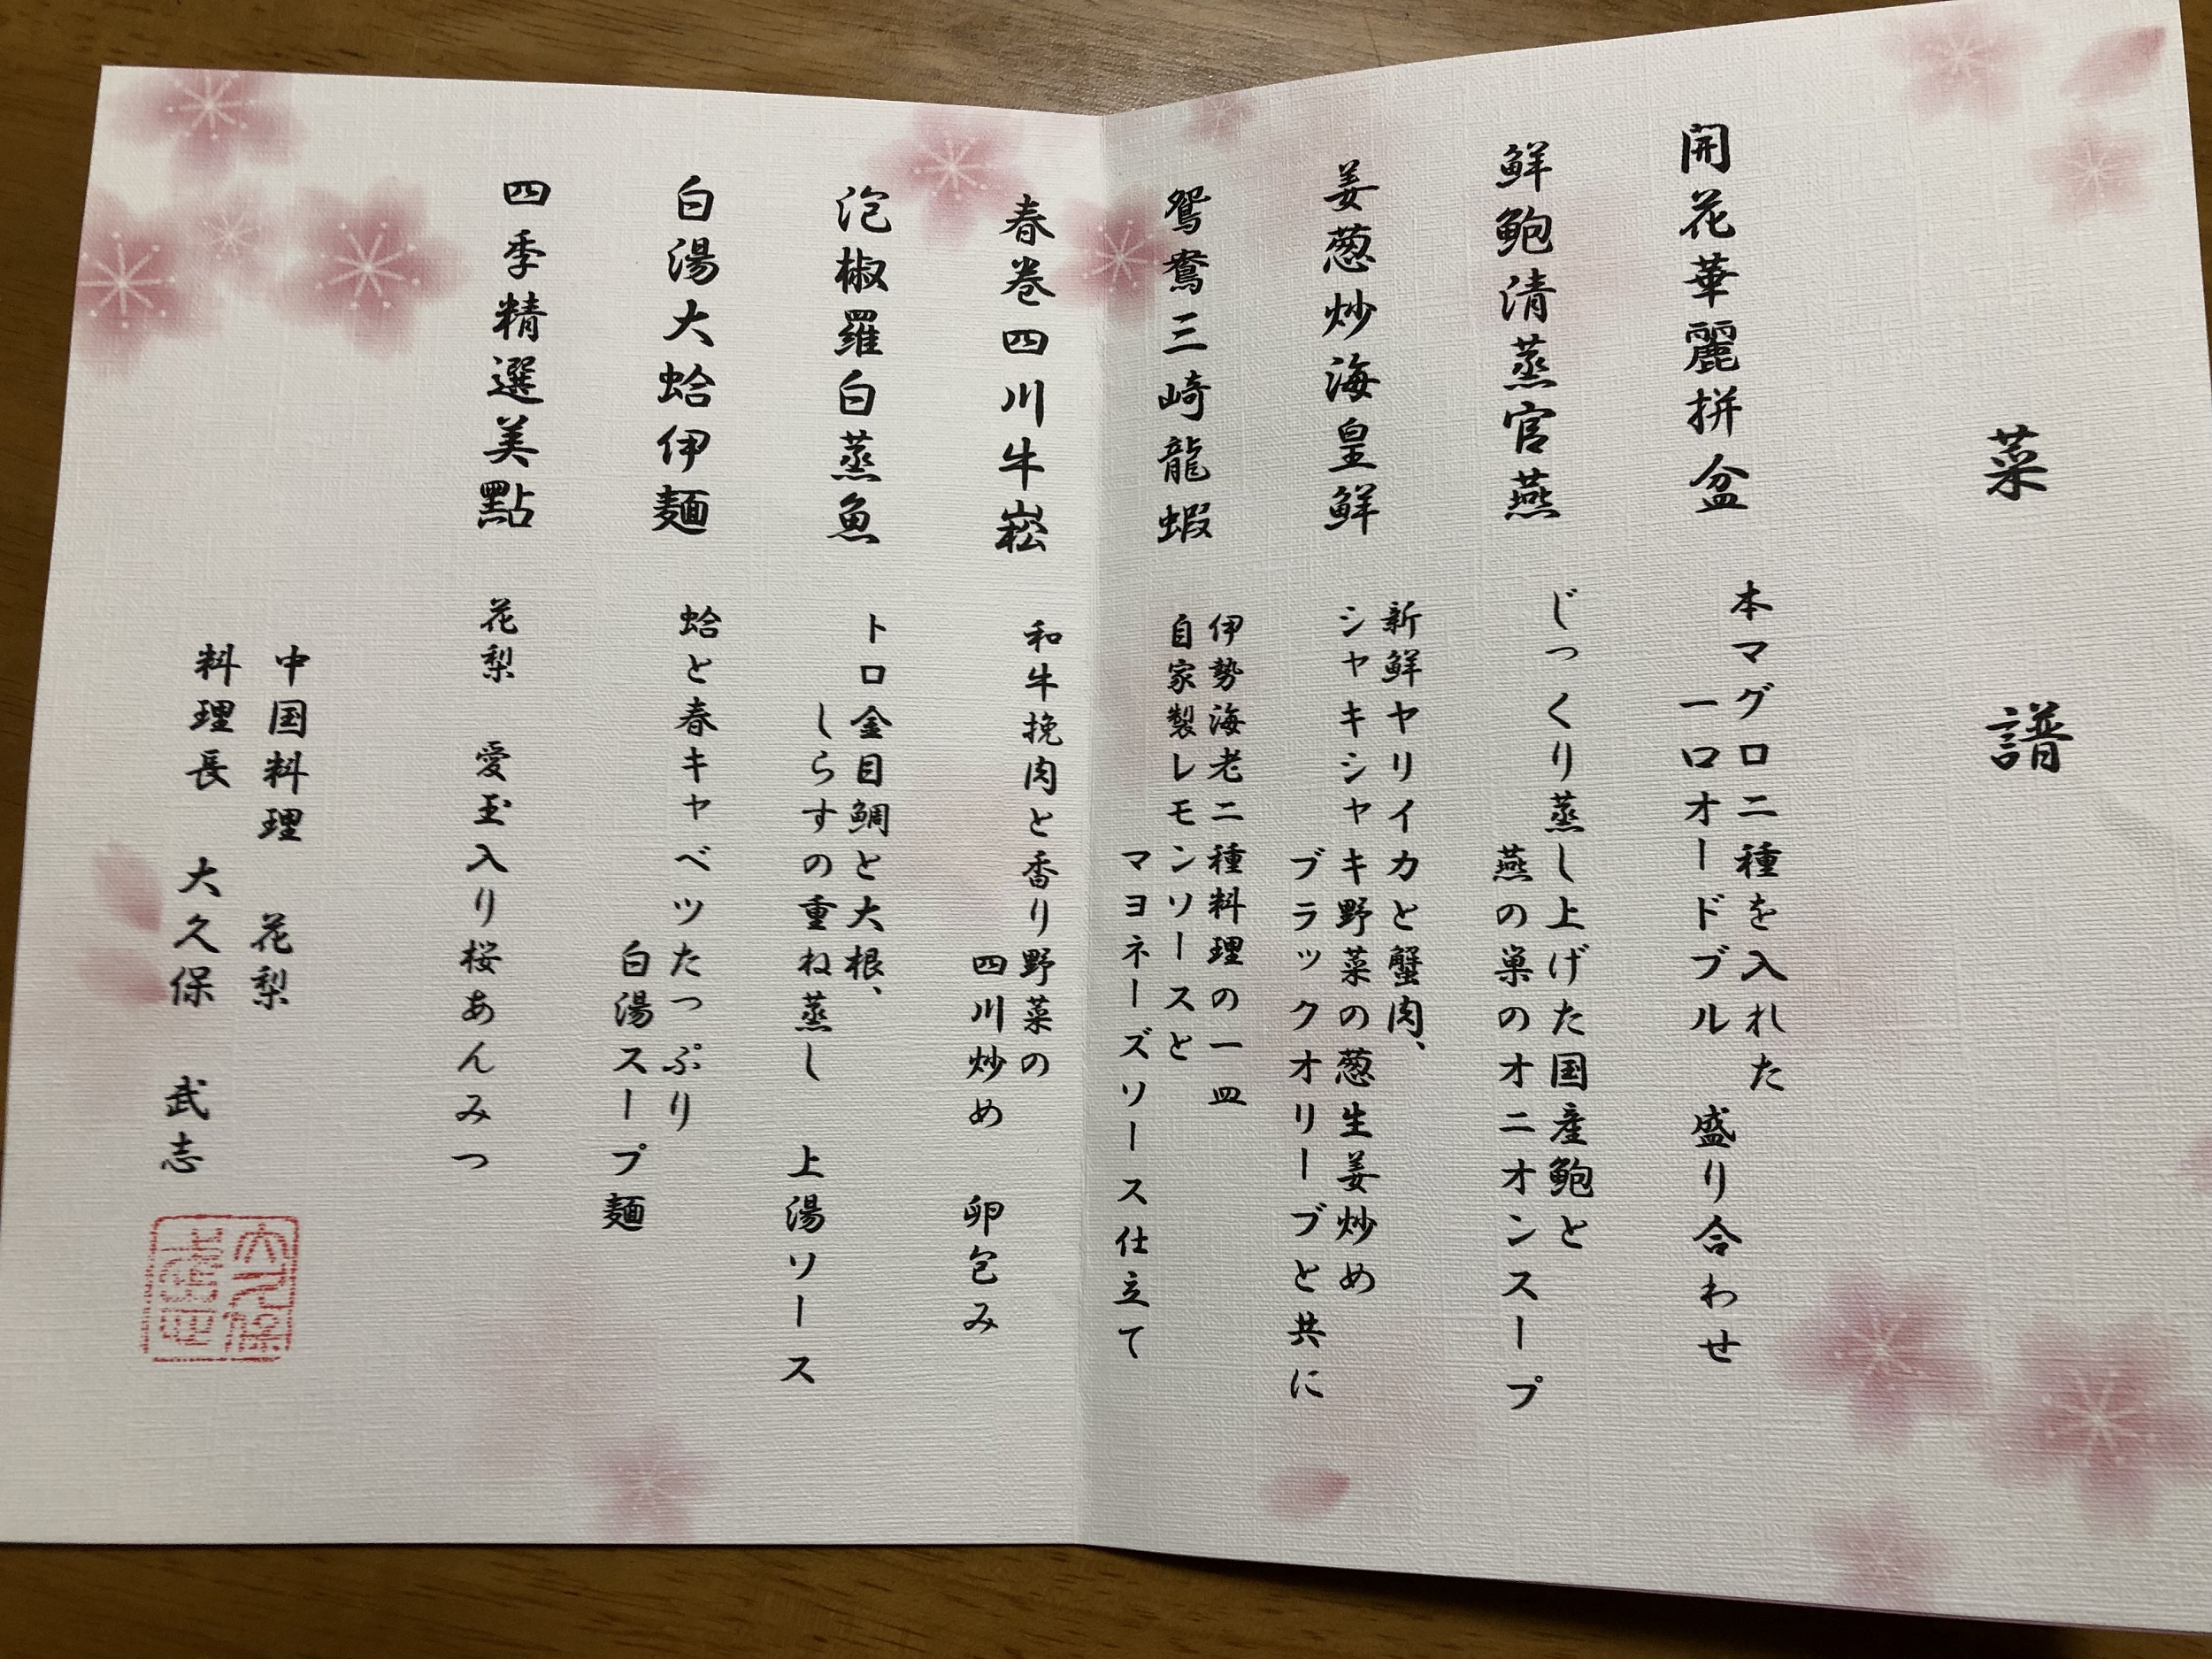 菜譜
開花華麗拼盆
本マグロ二種を入れた
一口オードブル 盛り合わせ
鮮鮑清蒸官燕
じっくり蒸し上げた国産鮑と
燕の巣のオニオンスープ
姜葱炒海皇鮮
新鮮ヤリイカと蟹肉、
シャキシャキ野菜の葱生姜炒め
ブラックオリーブと共に
鴛鴦三崎龍蝦
伊勢海老二種料理の一皿
自家製レモンソースと
マヨネーズソース仕立て
春巻四川牛崧
和牛挽肉と香り野菜の
四川炒め 卵包み
泡椒羅白蒸魚
トロ金目鯛と大根、
しらすの重ね蒸し 上湯ソース
白湯大蛤伊麺
蛤と春キャベツたっぷり
白湯スープ麺
四季精選美點
花梨 愛玉入り桜あんみつ
中国料理 花梨
料理長 大久保 武志